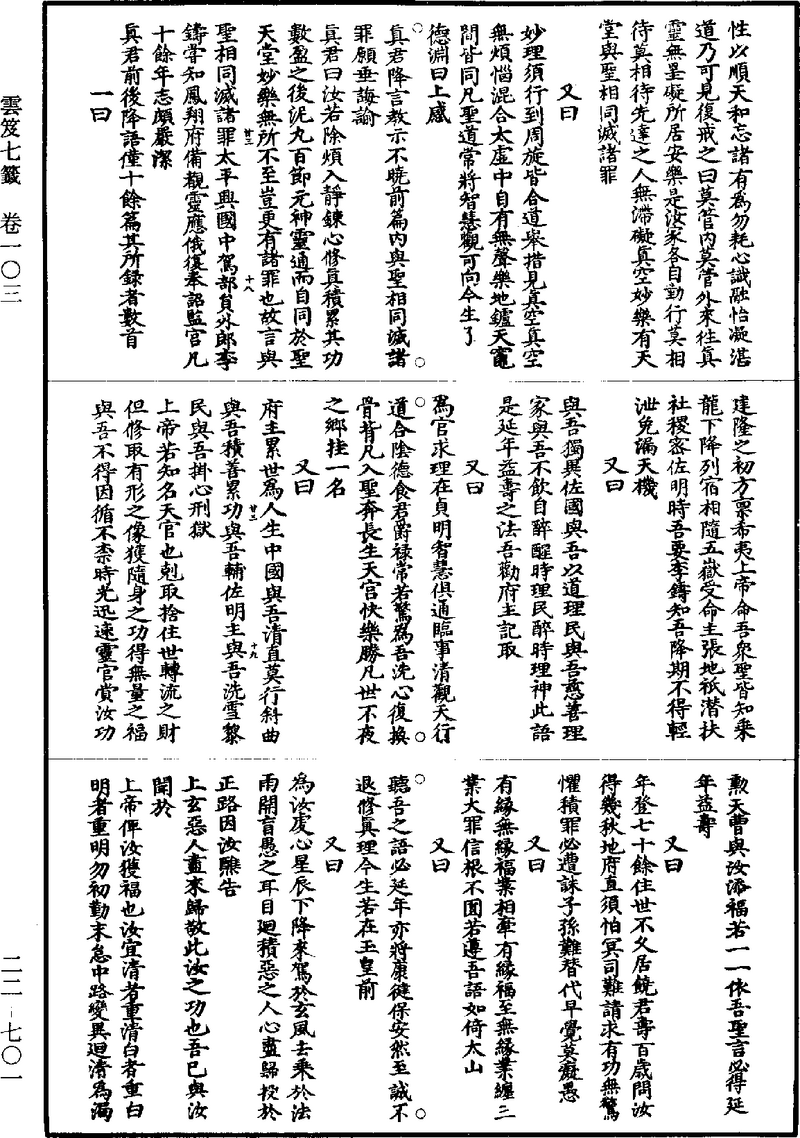 雲笈七籤　卷一〇三
二二－七〇一
性以順天和忘諸有為勿耗心識融怡凝湛
道乃可見復戒之曰莫管內莫管外來往真
靈無罣礙所居安樂是汝家各自勤行莫相
待莫相待先達之人無滯礙真空妙樂有天
堂與聖相同滅諸罪
又曰
妙理須行到周旋皆合道舉措見真空真空
無煩惱混合太虛中自有無聲樂地鑪天竈
間皆同凡聖道常將智慧觀可向今生了
德淵曰上感
真君降言教示不曉前篇內與聖相同滅諸
罪願垂誨諭
真君曰汝若除煩入靜鍊心修真積累其功
數盈之後泥九百節元神靈通而自同於聖
天堂妙樂無所不至豈更有諸罪也故言與
十八
聖相同滅諸罪太平興國中駕部員外郎李
廿三
鑄嘗知鳳翔府備觀靈應俄復奉詔監宮凡
十餘年志頗嚴潔
真君前後降語僅十餘篇其所錄者數首
一曰
建隆之初方稟希夷上帝命吾眾聖皆知乘
龍下降列宿相隨五嶽受命主張地祇潛扶
社稷密佐明時吾要李鑄知吾降期不得輕
泄免漏天機
又曰
與吾獨異佐國與吾以道理民與吾慈善理
家與吾不飲自醉醒時理民醉時理神此語
是延年益壽之法吾勸府主記取
又曰
為官求理在貞明智慧俱通臨事清觀天行
道合陰德食君爵祿常若驚為吾洗心復換
骨背凡入聖奔長生天官快樂勝凡世不夜
之鄉挂一名
又曰
府主累世為人生中國與吾清直莫行斜曲
十九
與吾積善累功與吾輔佐明主與吾洗雪黎
廿三
民與吾掛心刑獄
上帝若知名天官也剋取捨住世轉流之財
但修取有形之像獲隨身之功得無量之福
與吾不得因循不柰時光迅速靈官賞汝功
勳天曹與汝添福若一一依吾聖言必得延
年益壽
又曰
年登七十餘住世不久居饒君壽百歲問汝
得幾秋地府直須怕冥司難請求有功無驚
懼積罪必遭誅子孫難替代早覺莫癡愚
又曰
有緣無緣福業相牽有緣福至無緣業纏三
業大罪信根不圓若遵吾語如倚太山
又曰
聽吾之語必延年亦將康健保安然至誠不
退修真理今生若在玉皇前
又曰
為汝虔心星辰下降來駕於玄風去乘於法
雨開盲愚之耳目迴積惡之人心盡歸投於
正路因汝虔告
上玄惡人盡來歸敬此汝之功也吾已與汝
聞於
上帝俾汝獲福也汝宜清者重清白者重白
明者重明勿初勤末怠中路變異迴清為濁